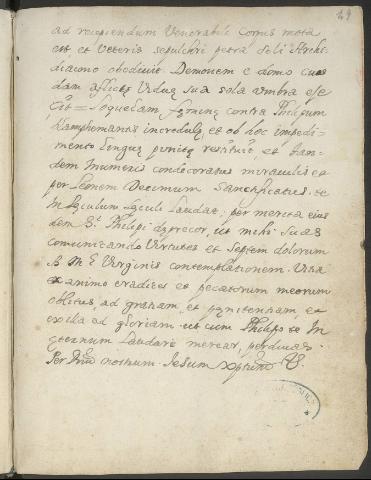 29
ad recipiendum Venerabile Corpus mota
est et Veteris sepulchri petra soli Archi-
diacono obediuit. Demonem è domo cuius
dam aflictę Viduę sua sola umbra eje
cit = loquelam fęminę contra Philipum
blasphemantis incredulę, et ob hoc impedi-
mento linguę punitę restituit et tan-
dem numeris condecoratus miraculis et
per Leonem Decimum Sanctificatus. te
in sęculum sęculi laudat; per merita eius
dem B.ti Philipi dęprecor, ut mihi suas
comunicando Virtutes et septem dolorum
B. M.ę Virginis contemplationem. Vitia
ex animo eradices et pecatorum meorum
oblitus, ad gratiam, et pęnitentiam, et
exilia, ad gloriam. ut cum Philipo te in
ęternum laudare merear, perducas.
Per Dnũ nostrum Iesum xptum &